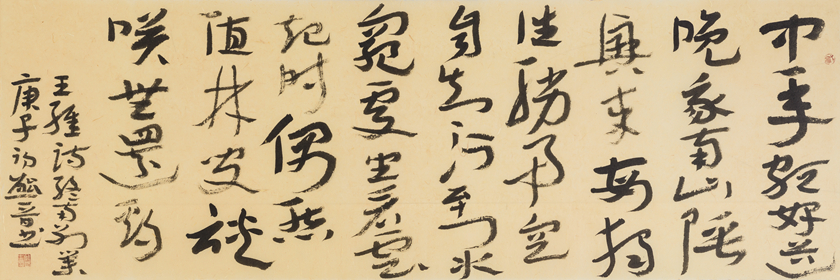 中年頗好道
晚家南山陲
興來每獨
往勝事空
自知行到水
窮處坐看雲
起時偶然
值林叟談
笑無還期
王維詩終南別業
庚子初晉書